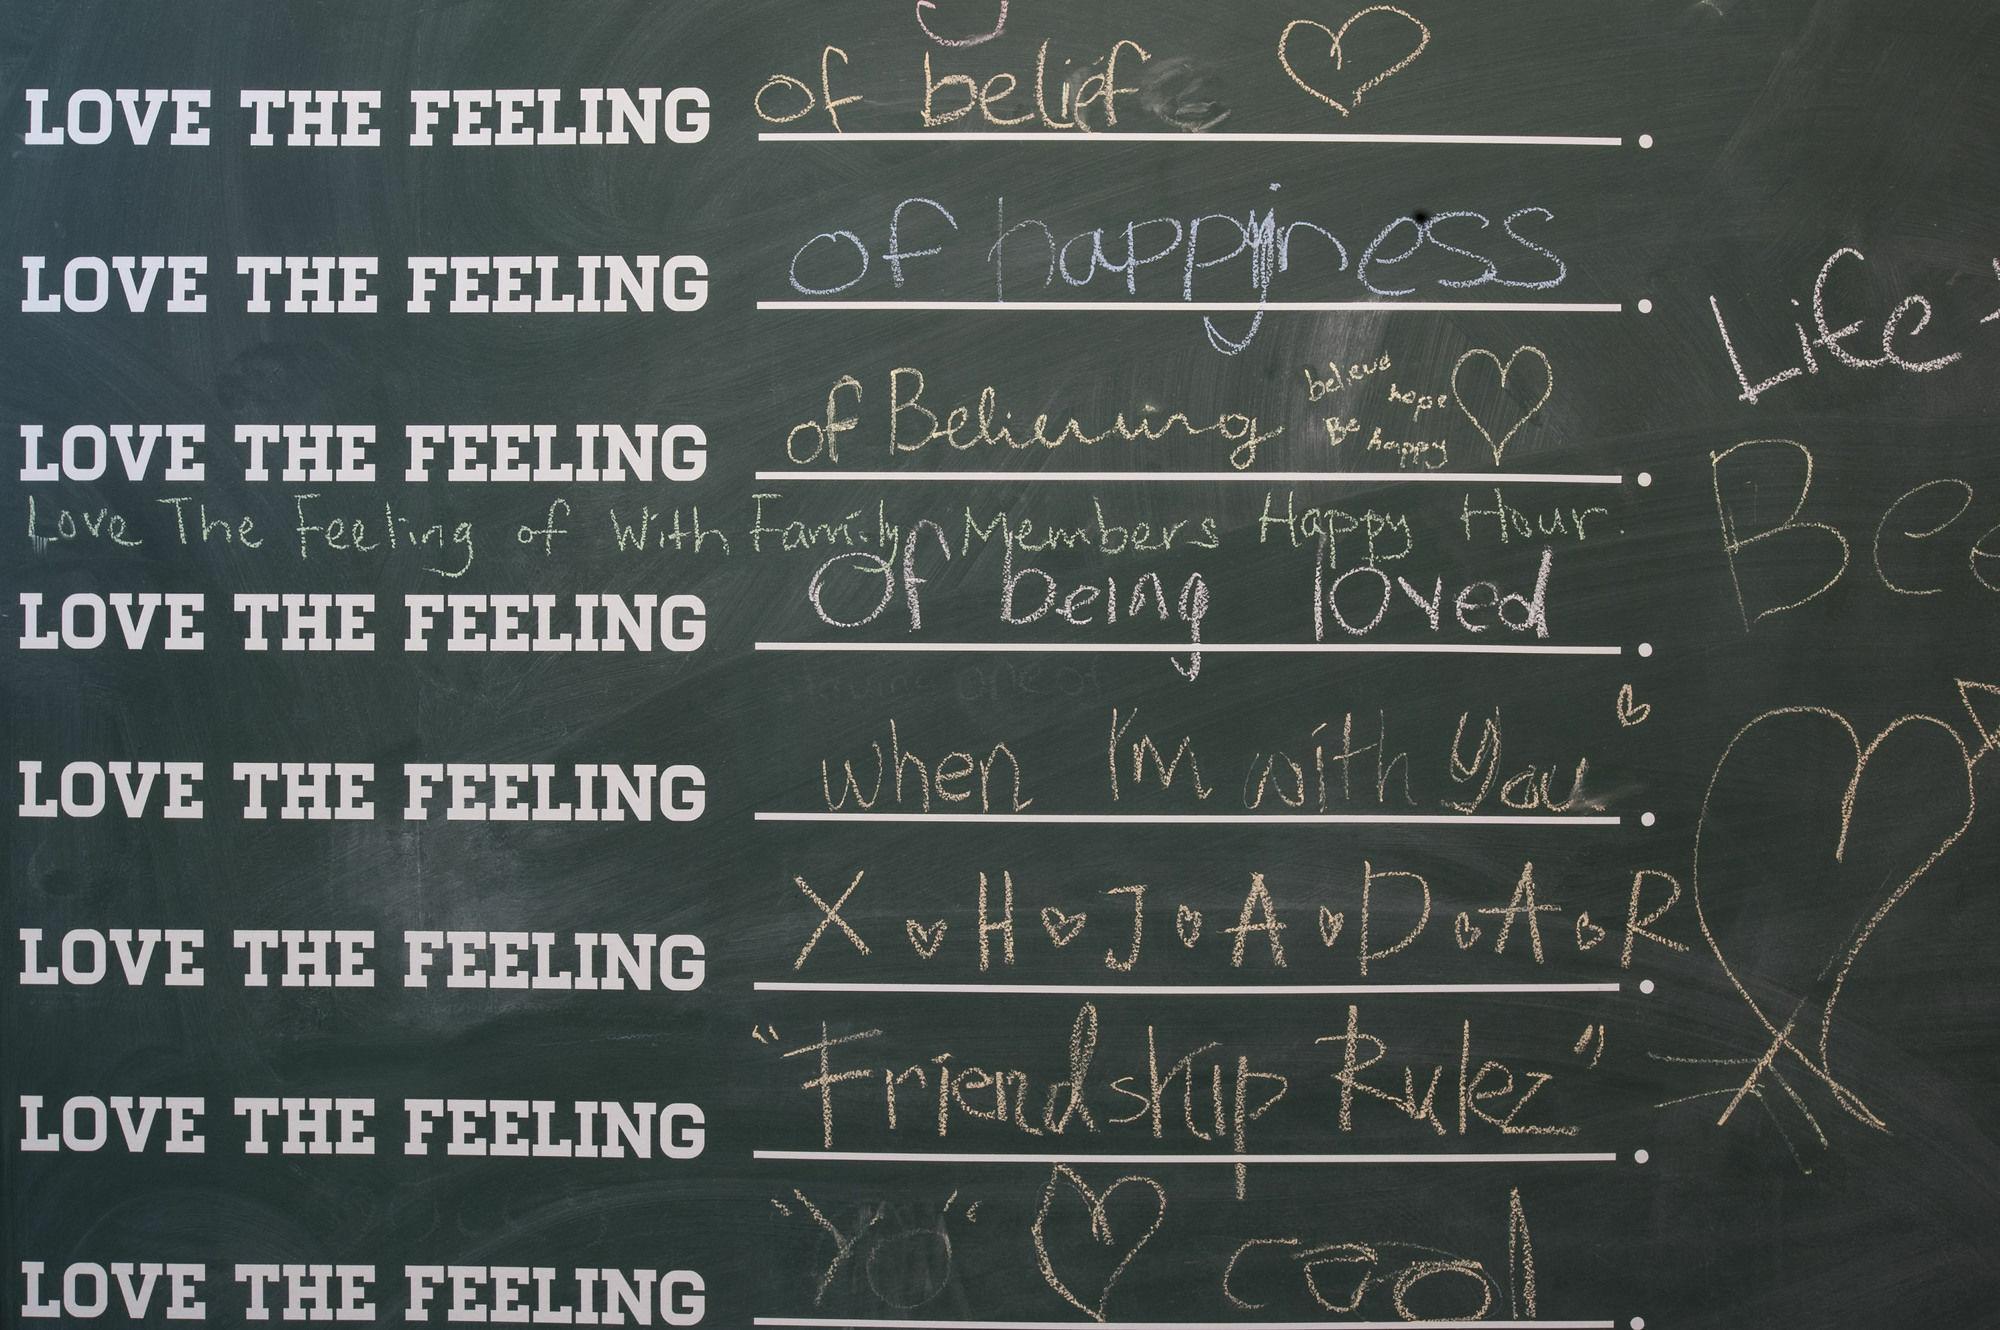 LOVE THE FEELING of belief
LOVE THE FEELING of happiness
Life
LOVE THE FEELING of Believing believe hope Be happy
Love The Feeling of With Family Members Happy Hour.
Bee
LOVE THE FEELING Of being loved
LOVE THE FEELING when I'm with You
LOVE THE FEELING X H J A D A R
LOVE THE FEELING "Friendship Rulez"
LOVE THE FEELING "YO" cool